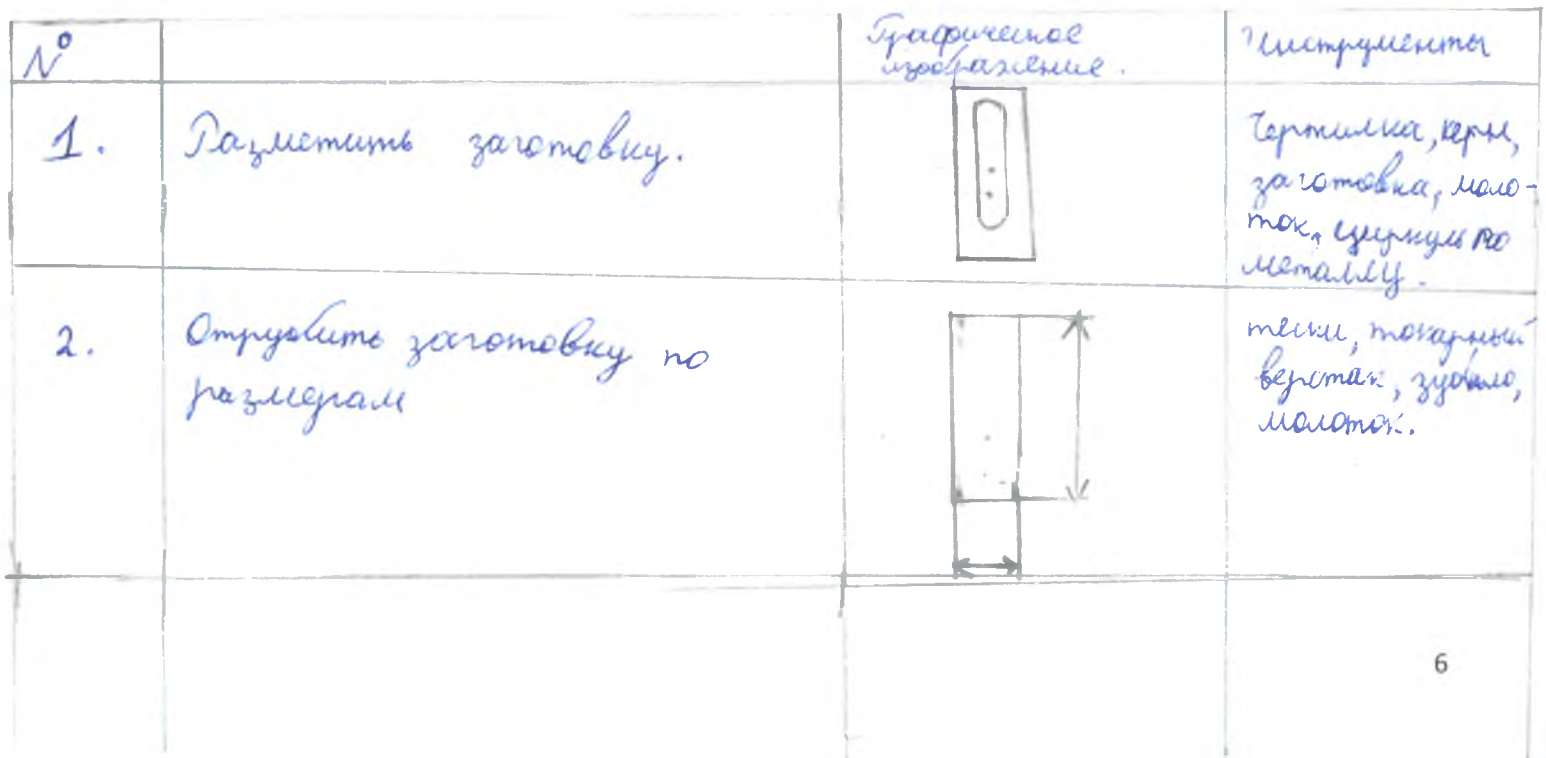 №
Графическое
изображение.
Инструменты
1.
Разметить заготовку.
Чертилка, керн,
заготовка, моло-
ток, циркуль по
металлу.
2.
Отрубить заготовку по
размерам
тиски, токарный
верстак, зубило,
молоток.
6